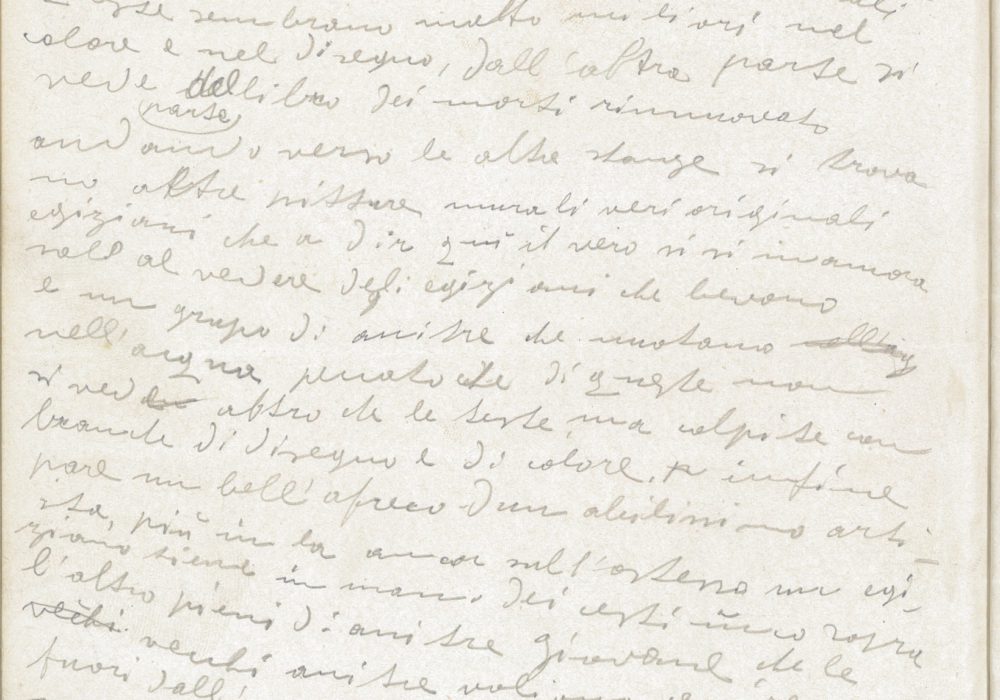 sembrano molto migliori nel
colore e nel disegno, dall'altra parte si
vede del libro dei morti rinnovato
parte
andando verso le altre stanze si trova
no altre pitture murali veri originali
egiziani che a dir quì il vero si si inamora
sol al vedere degli egiziani che bevono
e un grupo di anitre che nuotano
nell'acqua, che di queste non
si vede altro che le teste, ma colpite con
di disegno e di colore. infine
pare un bell'afreco d'un abilissimo arti-
sta, più in la ancor sull'ostesso un egi-
ziano tiene in mano dei cesti uno sopra
l'altro pieni di anitre giovane che le
vechi vechi anitre
fuori dall'